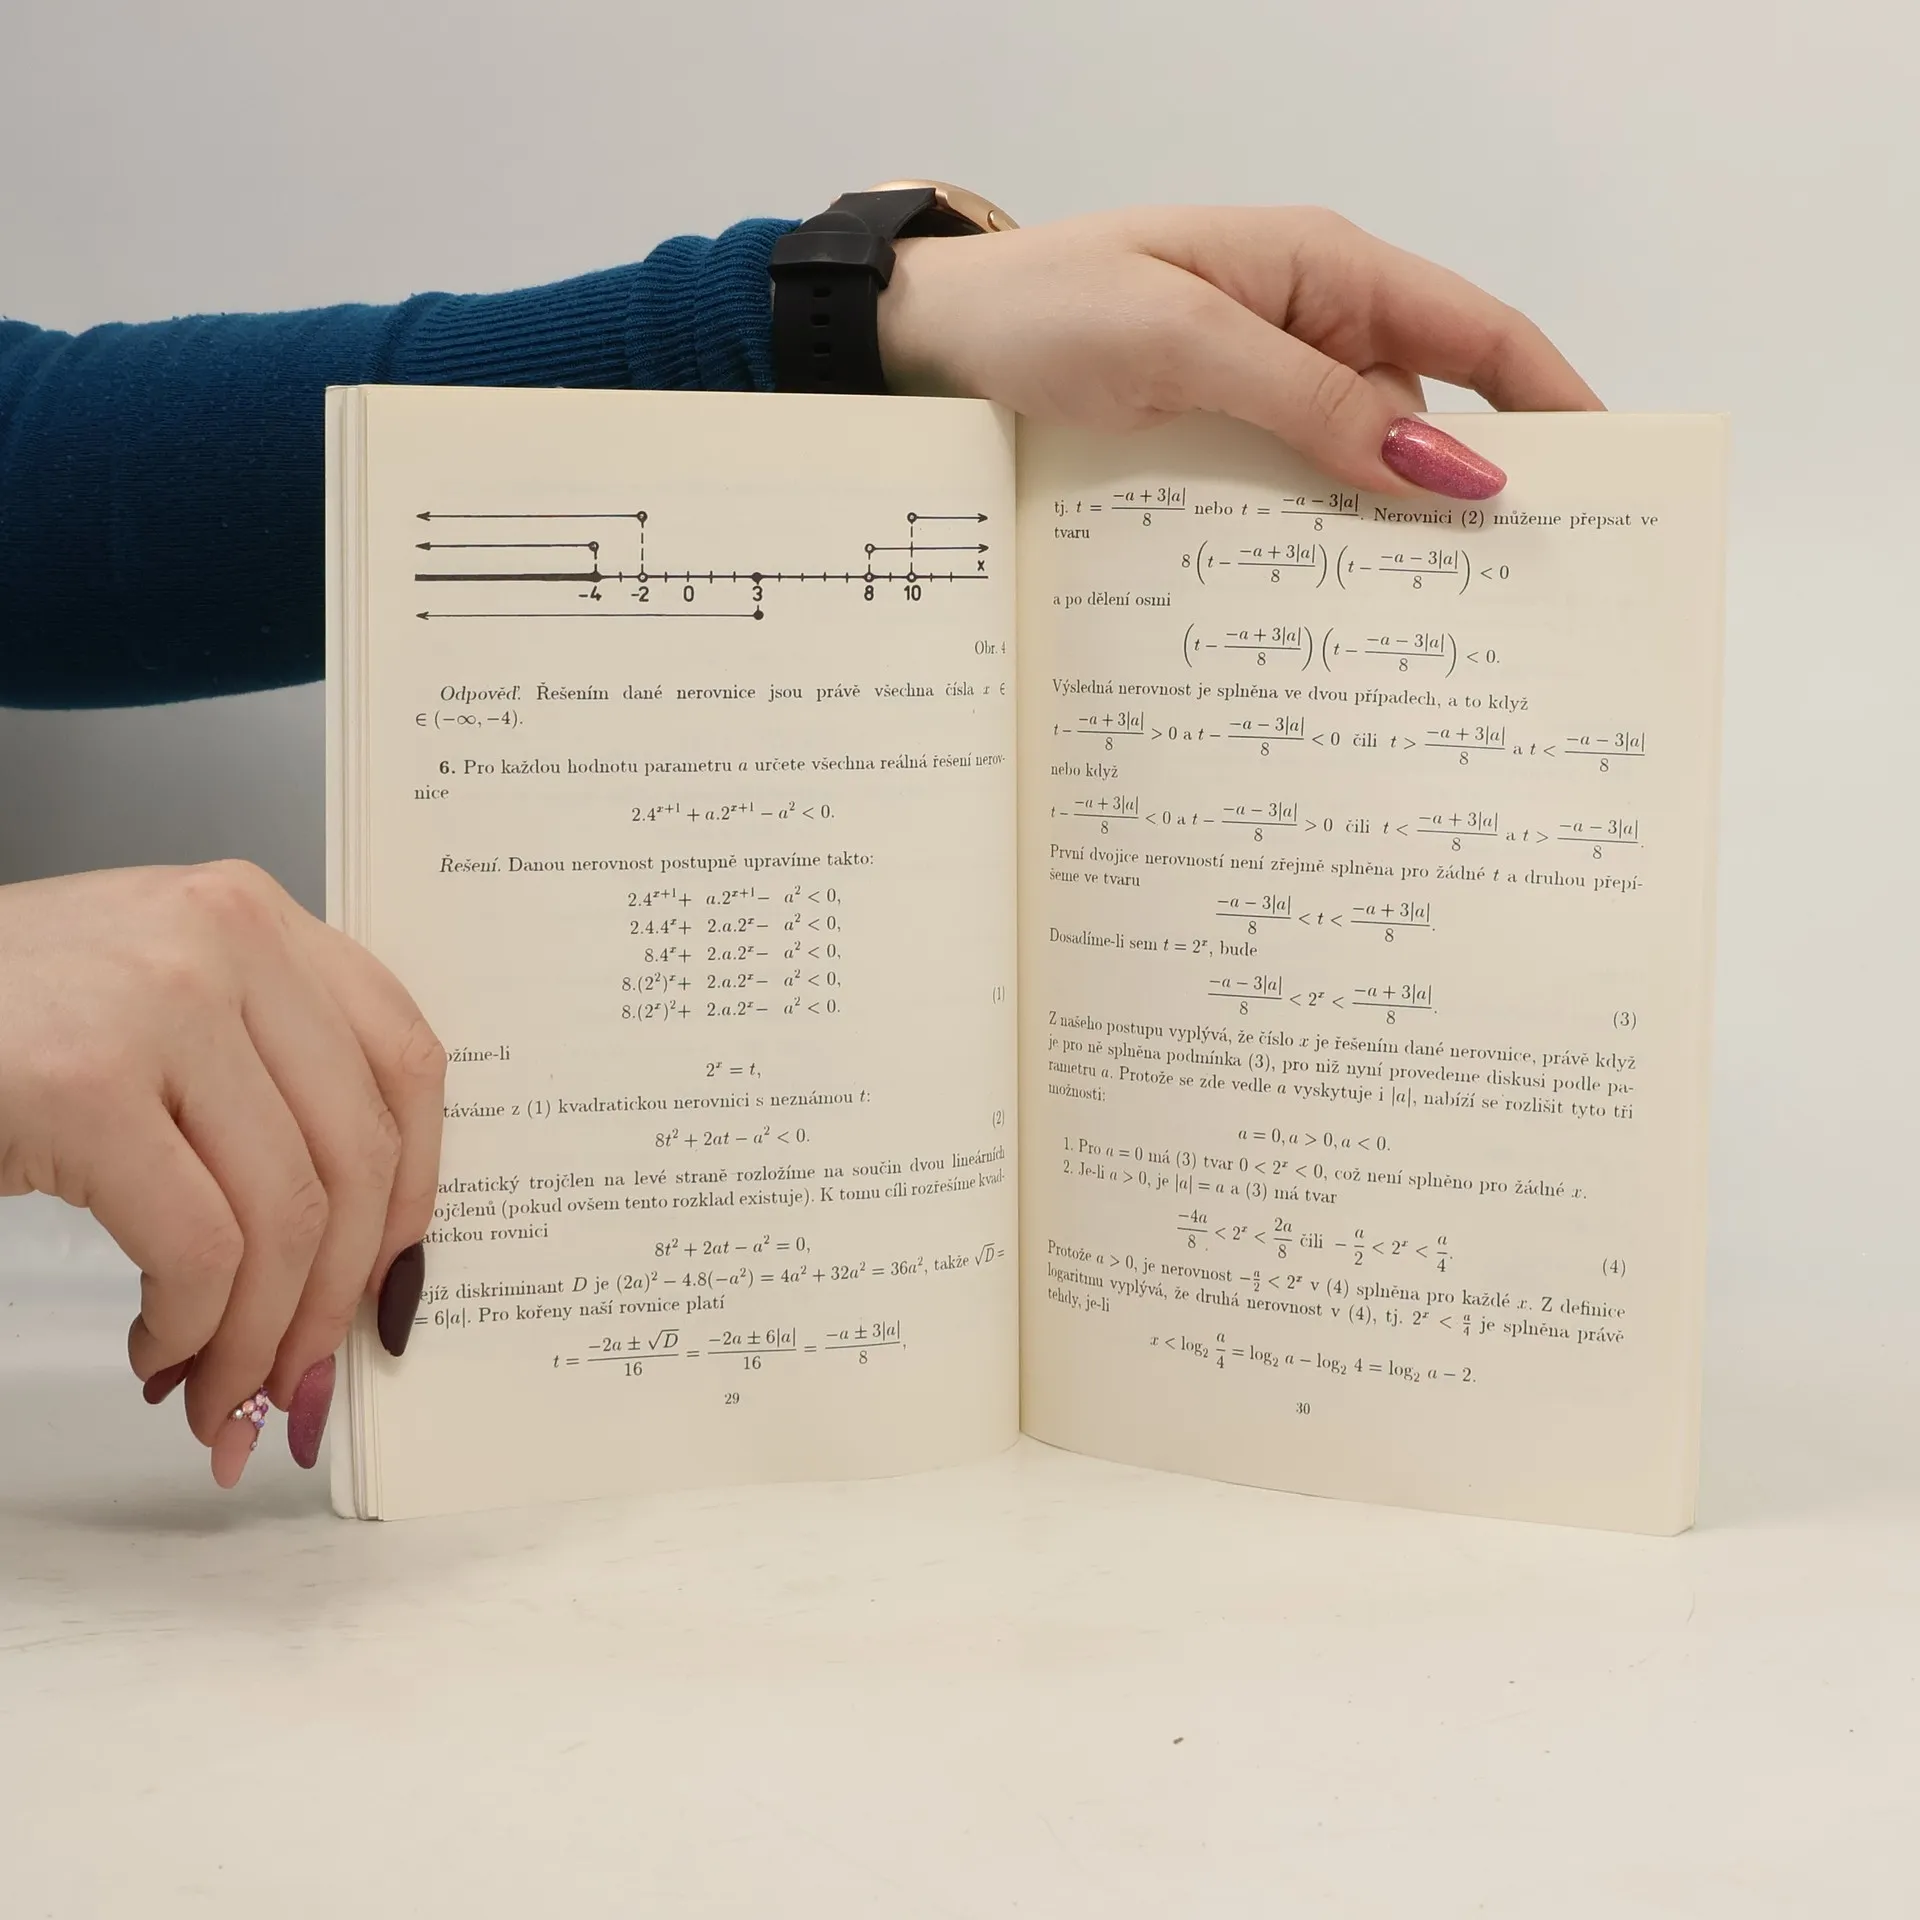 -4 -2 0 3 8 10 x
Obr. 4
Odpověď. Řešením dané nerovnice jsou právě všechna čísla x ∈
∈ (−∞, −4).
6. Pro každou hodnotu parametru a určete všechna reálná řešení nerov-
nice
2.4^{x+1} + a.2^{x+1} − a² < 0.
Řešení. Danou nerovnost postupně upravíme takto:
2.4^{x+1} + a.2^{x+1} − a² < 0,
2.4.4^x + 2.a.2^x − a² < 0,
8.4^x + 2.a.2^x − a² < 0,
8.(2²)^x + 2.a.2^x − a² < 0,
8.(2^x)² + 2.a.2^x − a² < 0. (1)
ožíme-li
2^x = t,
táváme z (1) kvadratickou nerovnici s neznámou t:
8t² + 2at − a² < 0. (2)
adratický trojčlen na levé straně rozložíme na součin dvou lineárních
ojčlenů (pokud ovšem tento rozklad existuje). K tomu cíli rozřešíme kvad-
atickou rovnici
8t² + 2at − a² = 0,
ejíž diskriminant D je (2a)² − 4.8(−a²) = 4a² + 32a² = 36a², takže √D =
= 6|a|. Pro kořeny naší rovnice platí
t = (−2a ± √D)/16 = (−2a ± 6|a|)/16 = (−a ± 3|a|)/8,
29
tj. t = (−a + 3|a|)/8 nebo t = (−a − 3|a|)/8. Nerovnici (2) můžeme přepsat ve
tvaru
8 (t − (−a + 3|a|)/8) (t − (−a − 3|a|)/8) < 0
a po dělení osmi
(t − (−a + 3|a|)/8) (t − (−a − 3|a|)/8) < 0.
Výsledná nerovnost je splněna ve dvou případech, a to když
t − (−a + 3|a|)/8 > 0 a t − (−a − 3|a|)/8 < 0 čili t > (−a + 3|a|)/8 a t < (−a − 3|a|)/8
nebo když
t − (−a + 3|a|)/8 < 0 a t − (−a − 3|a|)/8 > 0 čili t < (−a + 3|a|)/8 a t > (−a − 3|a|)/8.
První dvojice nerovností není zřejmě splněna pro žádné t a druhou přepí-
šeme ve tvaru
(−a − 3|a|)/8 < t < (−a + 3|a|)/8.
Dosadíme-li sem t = 2^x, bude
(−a − 3|a|)/8 < 2^x < (−a + 3|a|)/8. (3)
Z našeho postupu vyplývá, že číslo x je řešením dané nerovnice, právě když
je pro ně splněna podmínka (3), pro niž nyní provedeme diskusi podle pa-
rametru a. Protože se zde vedle a vyskytuje i |a|, nabízí se rozlišit tyto tři
možnosti:
a = 0, a > 0, a < 0.
1. Pro a = 0 má (3) tvar 0 < 2^x < 0, což není splněno pro žádné x.
2. Je-li a > 0, je |a| = a a (3) má tvar
−4a/8 < 2^x < 2a/8 čili −a/2 < 2^x < a/4. (4)
Protože a > 0, je nerovnost −a/2 < 2^x v (4) splněna pro každé x. Z definice
logaritmu vyplývá, že druhá nerovnost v (4), tj. 2^x < a/4 je splněna právě
tehdy, je-li
x < log₂ a/4 = log₂ a − log₂ 4 = log₂ a − 2.
30